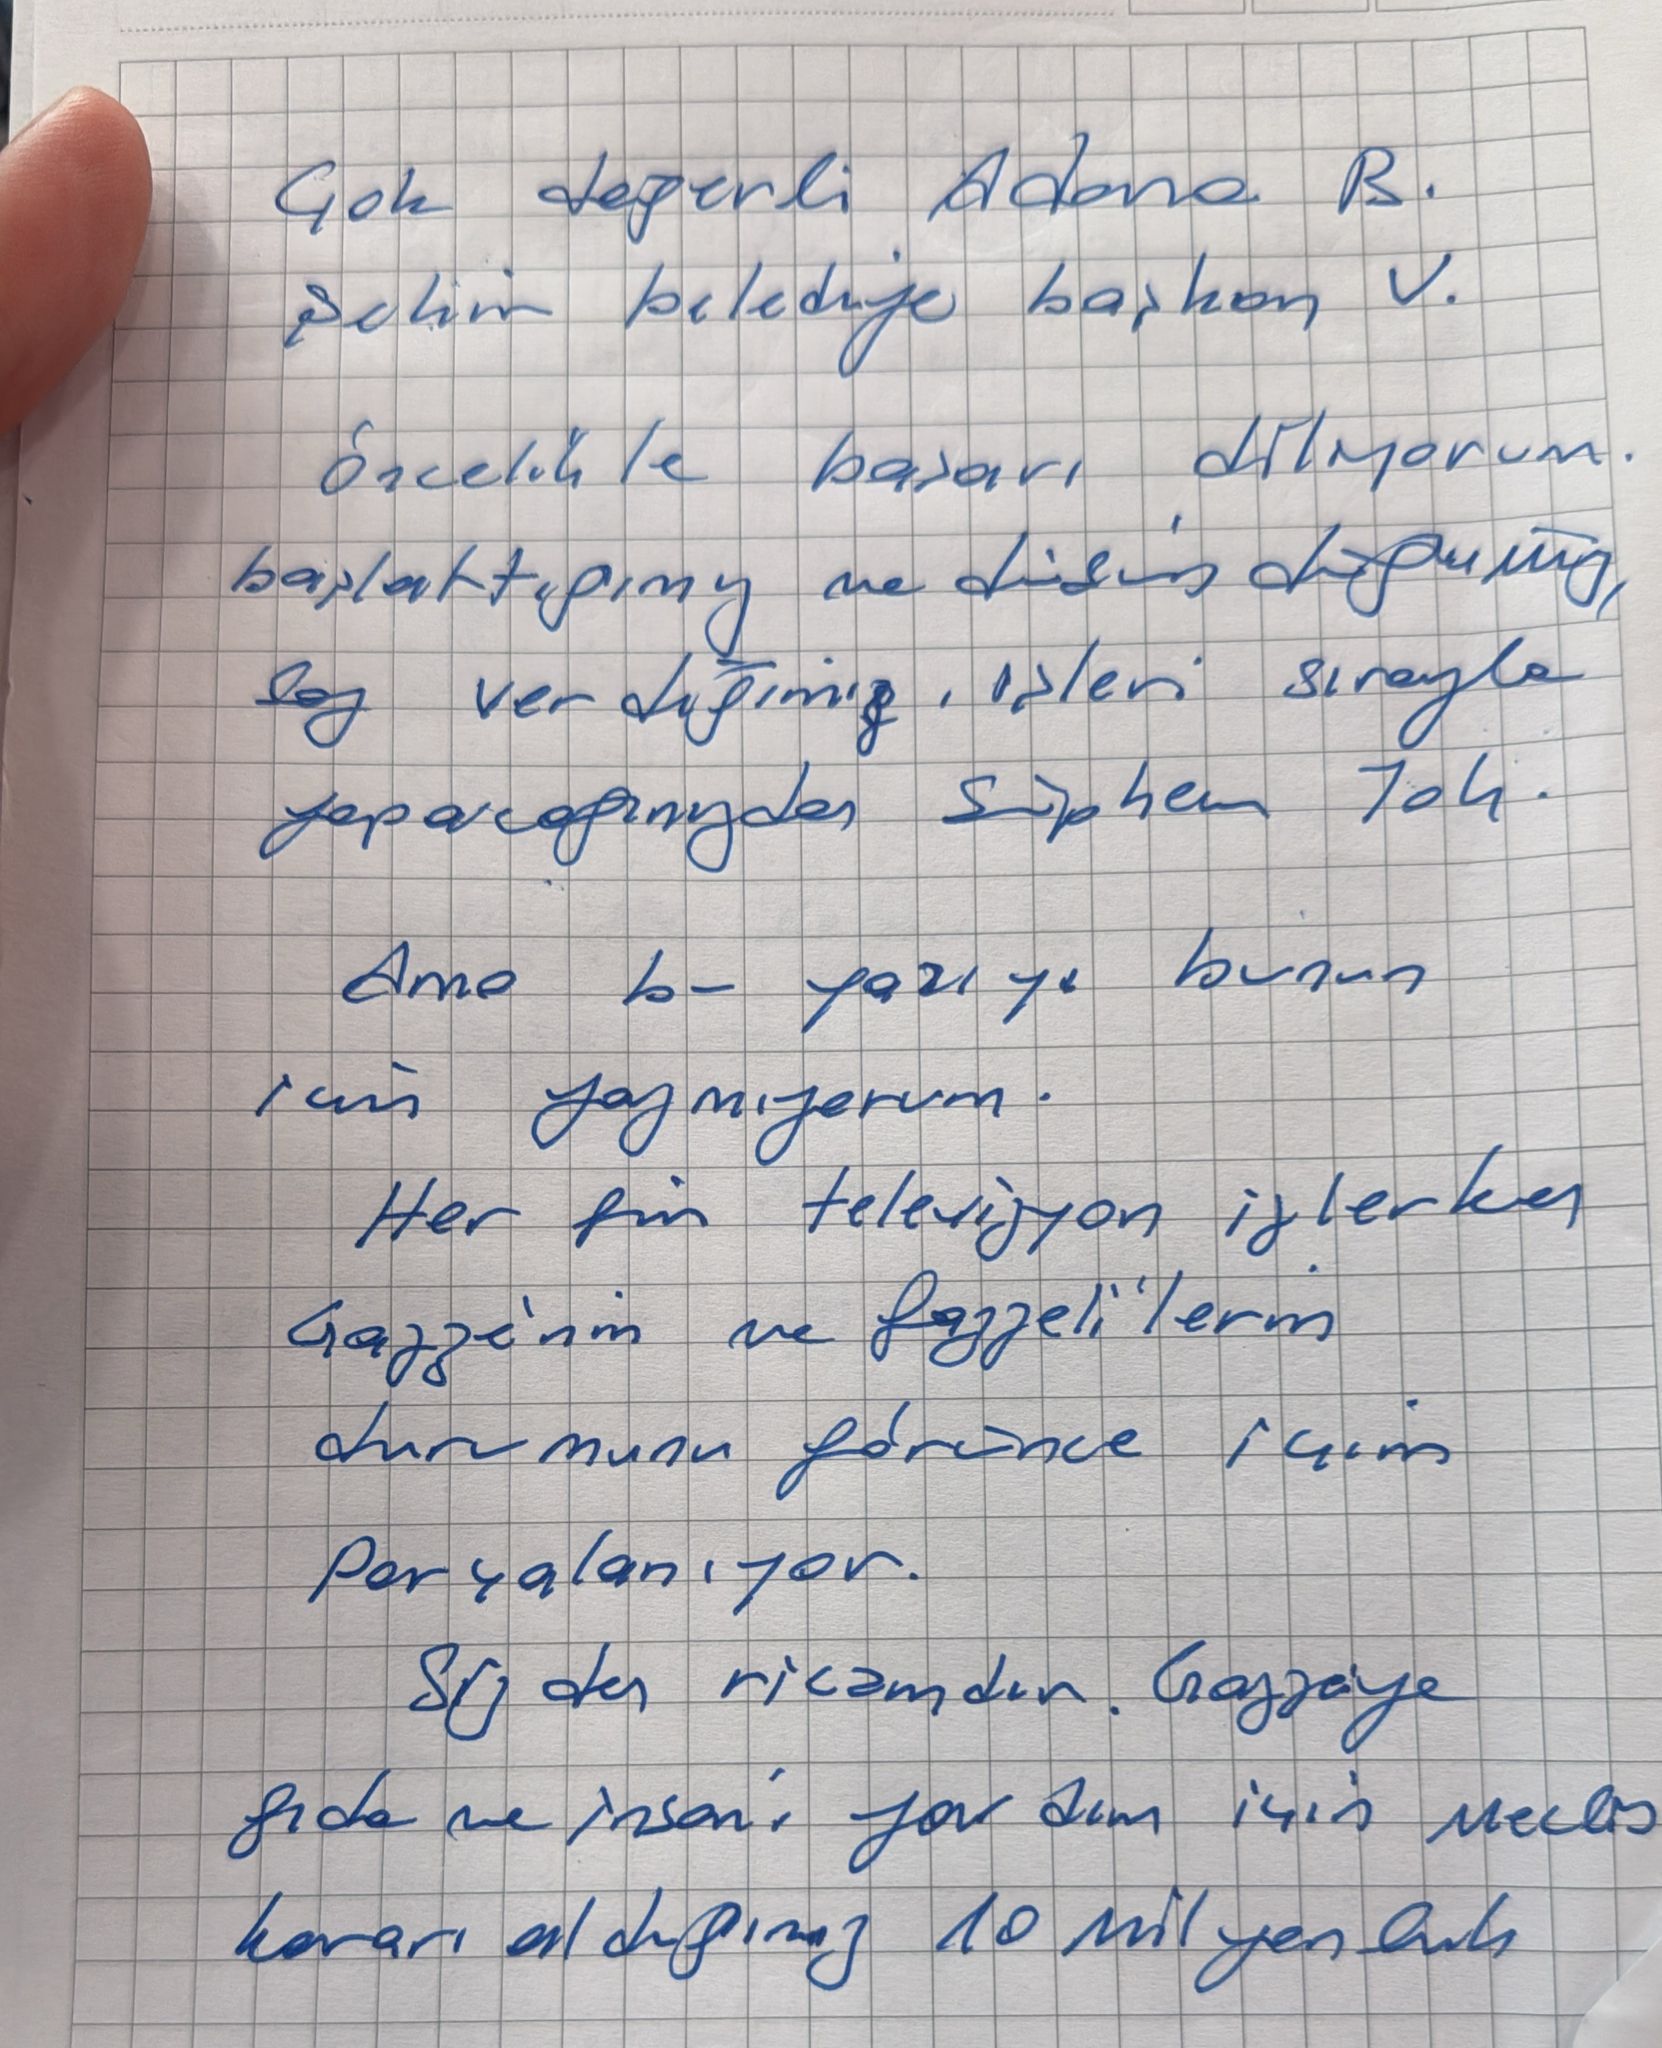 Çok değerli Adana B.
Şehir belediye başkan V.
Öncelikle başarı diliyorum.
başlattığınız ve düşündüğünüz,
söz verdiğiniz, işleri sırayla
yapacağınızdan şüphem Yok.
Ama bu yazıyı bunun
için yazmıyorum.
Her gün televizyon izlerken
Gazze'nin ve gazzeli'lerin
durumunu görünce içim
Parçalanıyor.
Sizden ricamdır. Gazzeye
gıda ve insani yardım için Meclis
kararı aldığınız 10 Milyonluk